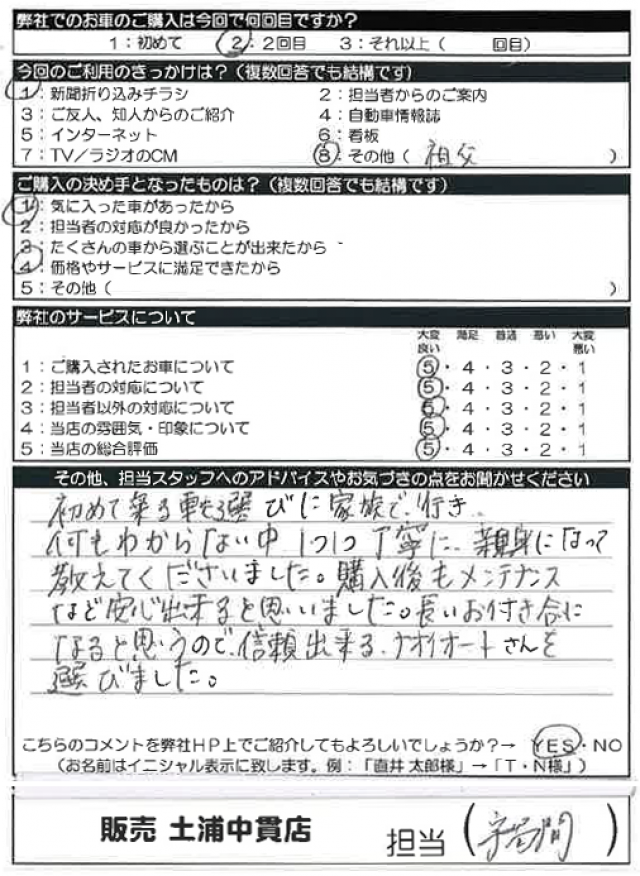 弊社でのお車のご購入は今回で何回目ですか？
1：初めて　2：2回目　3：それ以上（　　回目）
今回のご利用のきっかけは？（複数回答でも結構です）
1：新聞折り込みチラシ　2：担当者からのご案内
3：ご友人、知人からのご紹介　4：自動車情報誌
5：インターネット　6：看板
7：TV／ラジオのCM　8：その他（ 祖父 ）
ご購入の決め手となったものは？（複数回答でも結構です）
1：気に入った車があったから
2：担当者の対応が良かったから
3：たくさんの車から選ぶことが出来たから
4：価格やサービスに満足できたから
5：その他（　　）
弊社のサービスについて
大変良い　満足　普通　悪い　大変悪い
1：ご購入されたお車について　5・4・3・2・1
2：担当者の対応について　5・4・3・2・1
3：担当者以外の対応について　5・4・3・2・1
4：当店の雰囲気・印象について　5・4・3・2・1
5：当店の総合評価　5・4・3・2・1
その他、担当スタッフへのアドバイスやお気づきの点をお聞かせください
初めて乗る車を選びに家族で行き
何もわからない中1つ1つ丁寧に、親身になって
教えてくださいました。購入後もメンテナンス
など安心出来ると思いました。長いお付き合に
なると思うので、信頼出来る、ナオイオートさんを
選びました。
こちらのコメントを弊社HP上でご紹介してもよろしいでしょうか？→ YES・NO
（お名前はイニシャル表示に致します。例：「直井 太郎様」→「T・N様」）
販売 土浦中貫店　担当（　　）